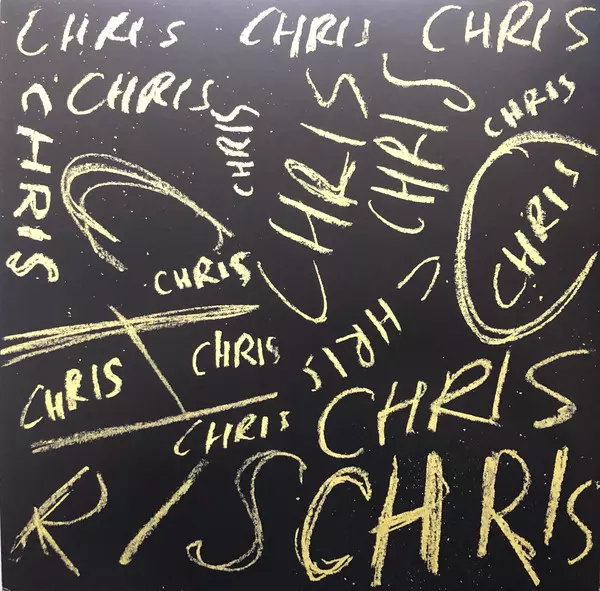 CHRIS CHRIS CHRIS
CHRIS
CHRIS
CHRIS
CHRIS
CHRIS
CHRIS
CHRIS
CHRIS
CHRIS
CHRIS
CHRIS
CHRIS
CHRIS
RIS CHRIS